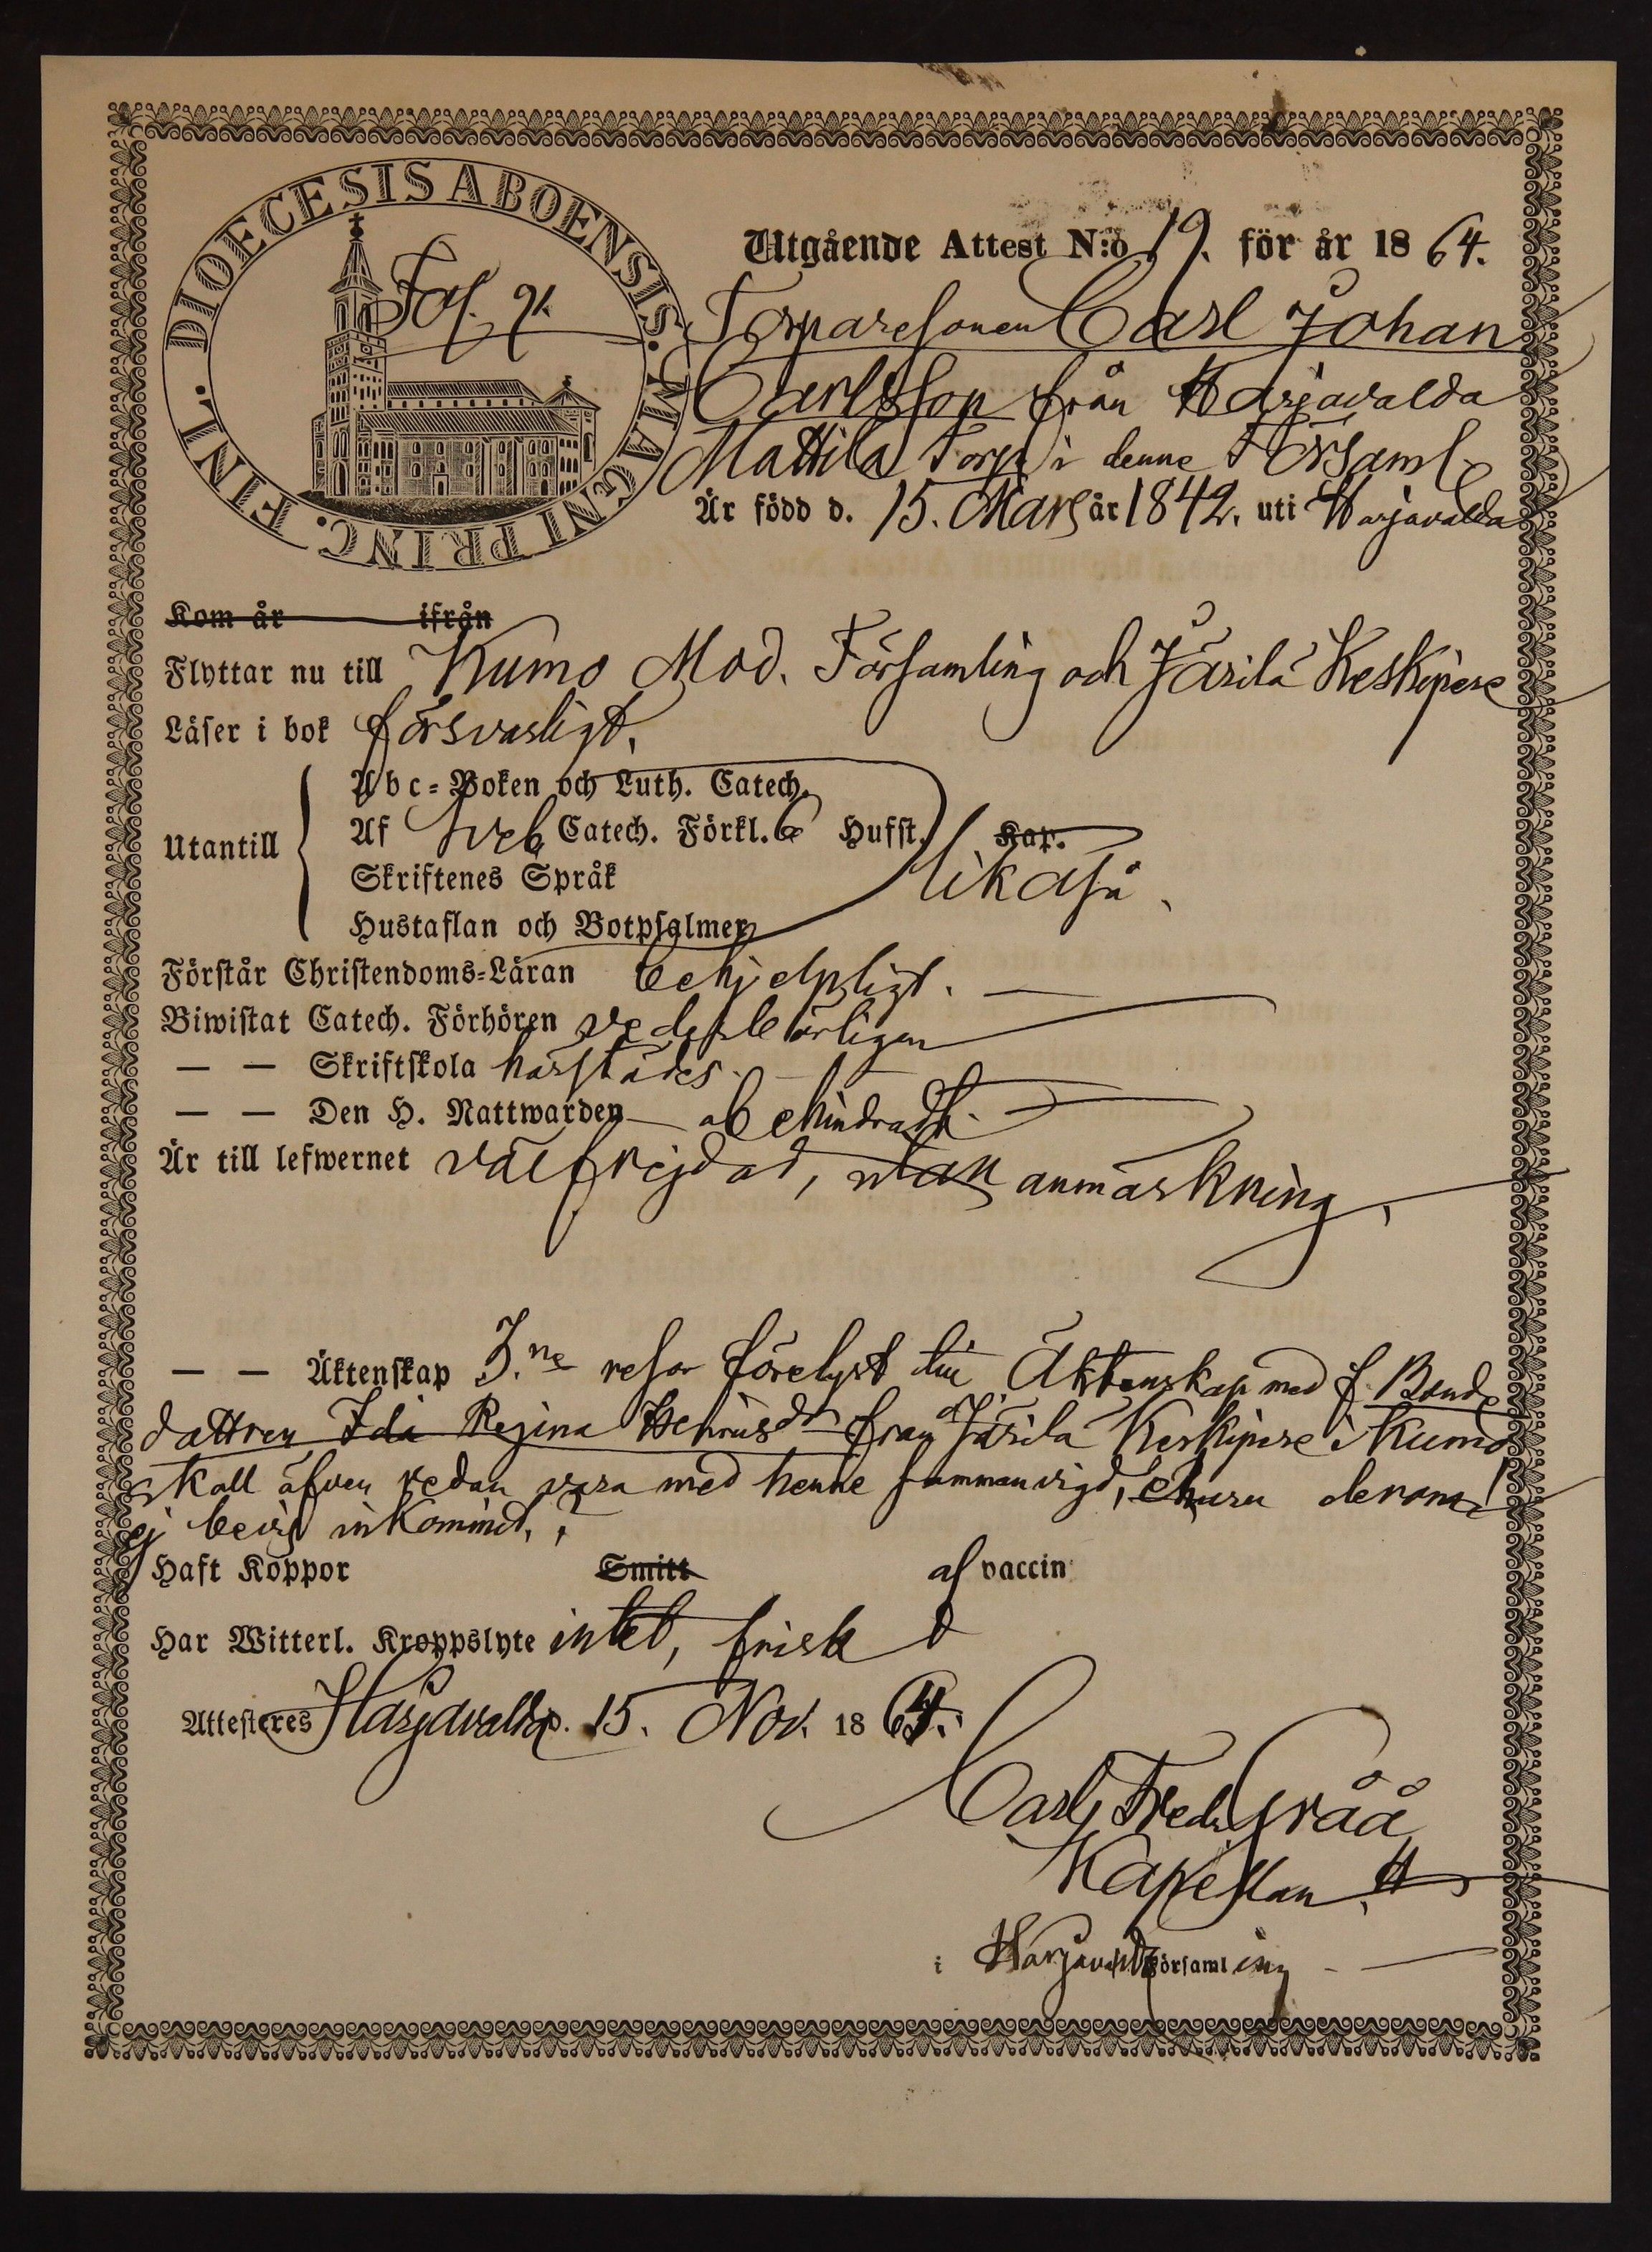 DIOECESIS ABOENSIS. MAGNI PRINC. FINL.
Fol. 91.
Utgående Attest N:o 19. för år 1864.
Torparesonen Carl Johan
Carlsson från Harjavalda
Mattila Torp i denne Församl.
Är född d. 15. Mars år 1842. uti Harjavalda
Kom år ifrån
Flyttar nu till Kumo Mod. Församling och Järilä Keskipere
Läser i bok försvarligt.
Utantill
Abc-Boken och Luth. Catech.
Af Sveb. Catech. Förkl. 6 Hufst. Kap.
Skriftenes Språk likaså
Hustaflan och Botpsalmer
Förstår Christendoms-Läran behjelpligt.
Biwistat Catech. Förhören vederbörligen
— — Skriftskola härstädes.
— — Den H. Nattwarden obehindradt.
Är till lefwernet välfrejdad, utan anmärkning.
— — Äktenskap 3.ne resor förelyst till Äktenskap med f. Bonde
dattren Ida Regina Henricsdr från Järilä Keskipere i Kumo
skall äfven redan vara med henne sammanvigd, ehuru derom
ej bevis inkommit.
Haft Koppor Smitt af vaccin
Har Witterl. Kroppslyte intet, frisk
Attesteres Harjavalda d. 15. Nov. 1864.
Carl Fredr. Gråå
Kapellan
i Harjavalda Församling